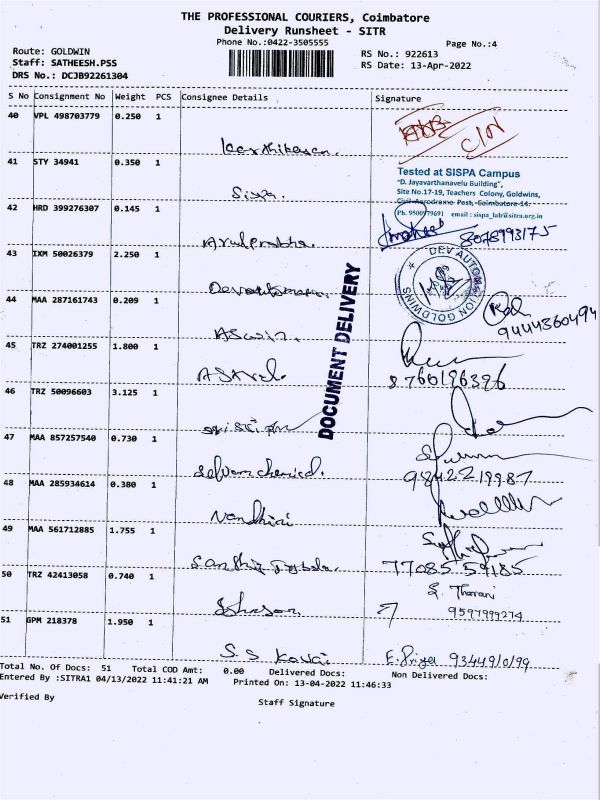 THE PROFESSIONAL COURIERS, Coimbatore
Delivery Runsheet - SITR
Phone No.:0422-3505555
Page No.:4
Route: GOLDWIN
Staff: SATHEESH.PSS
DRS No.: DCJB92261304
RS No.: 922613
RS Date: 13-Apr-2022
S No Consignment No Weight PCS Consignee Details Signature
40 VPL 498703779 0.250 1
Karthikeyan.
C/N
41 STY 34941 0.350 1
Siva.
Tested at SISPA Campus
"D. Jayavarthanavelu Building",
Site No.17-19, Teachers Colony, Goldwins,
Civil Aerodrome Post, Coimbatore-14.
Ph. 9500979691 email : sispa_lab@sitra.org.in
42 HRD 399276307 0.145 1
Arulprabha.
8078993175
43 IXM 50026379 2.250 1
DEV AUTOMATION GOLDWINS
44 MAA 287161743 0.209 1
Aswin.
9444360494
45 TRZ 274001255 1.800 1
8766196396
46 TRZ 50096603 3.125 1
DOCUMENT DELIVERY
47 MAA 857257540 0.730 1
Selvam chemical.
9842219987
48 MAA 285934614 0.380 1
Nandhini
49 MAA 561712885 1.755 1
77085 59185
50 TRZ 42413058 0.740 1
S. Tharani
9597999274
51 GPM 218378 1.950 1
S.S Kovai
E. Priya 9344910199
Total No. Of Docs: 51 Total COD Amt: 0.00 Delivered Docs: Non Delivered Docs:
Entered By :SITRA1 04/13/2022 11:41:21 AM Printed On: 13-04-2022 11:46:33
Verified By
Staff Signature